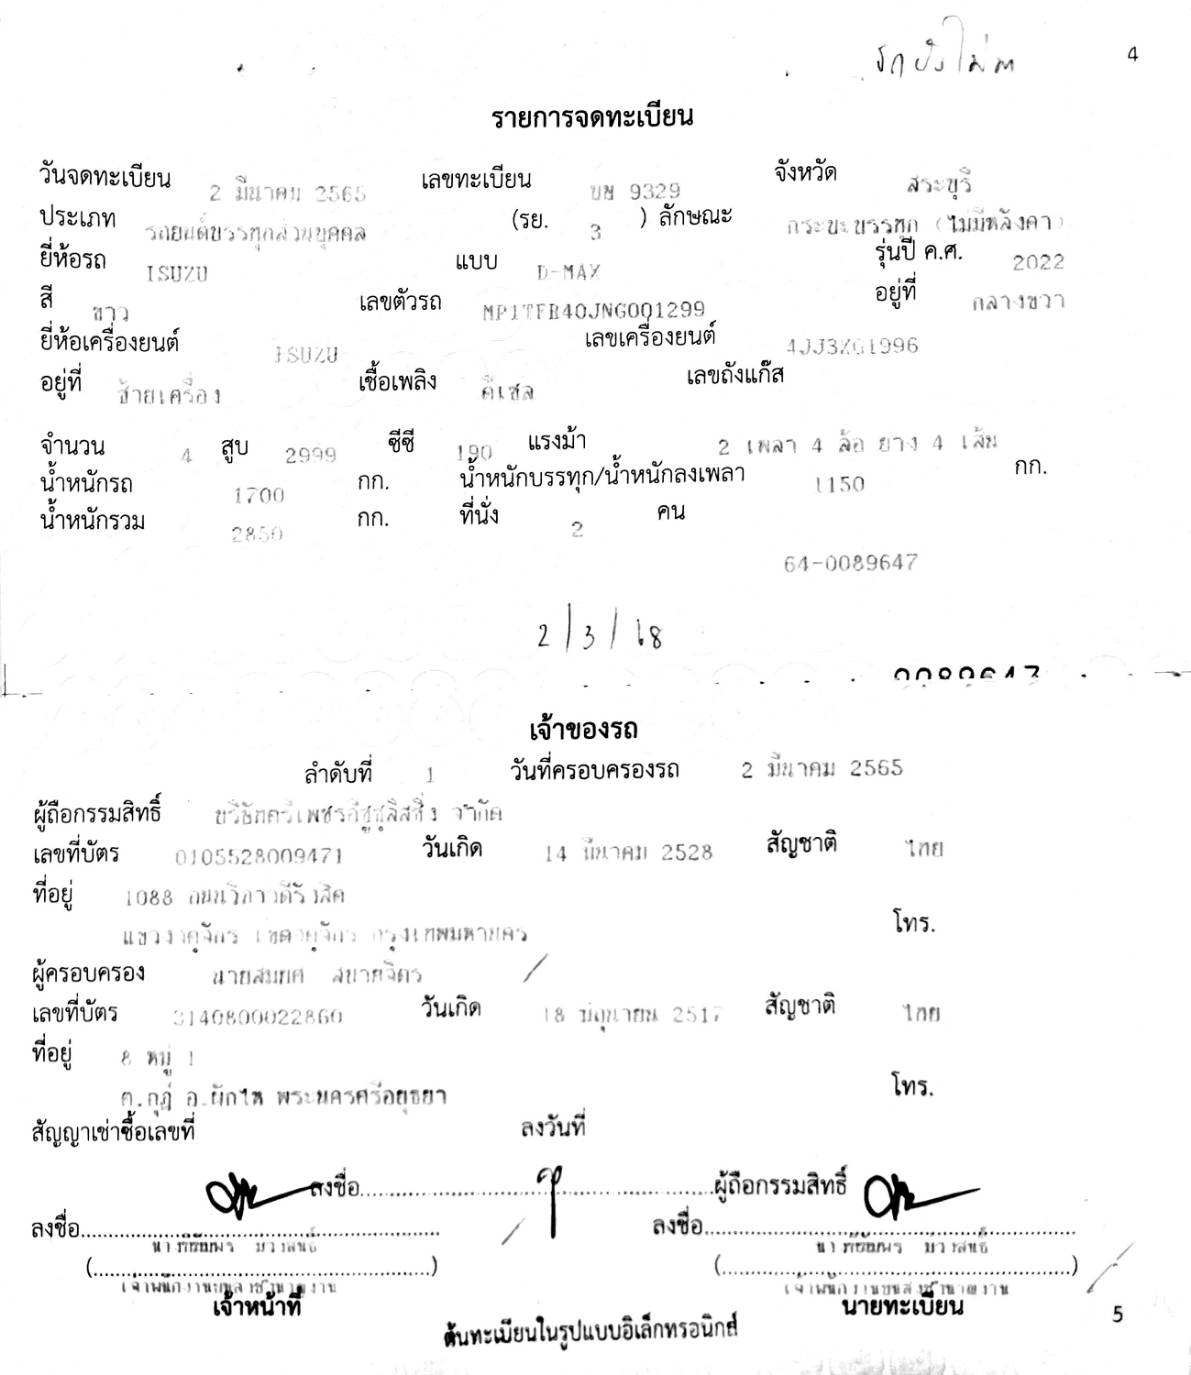 4
รายการจดทะเบียน
วันจดทะเบียน 2 มีนาคม 2565 เลขทะเบียน บพ 9329 จังหวัด สระบุรี
ประเภท รถยนต์บรรทุกส่วนบุคคล (รย. 3 ) ลักษณะ กระบะบรรทุก (ไม่มีหลังคา)
ยี่ห้อรถ ISUZU แบบ D-MAX รุ่นปี ค.ศ. 2022
สี ขาว เลขตัวรถ MP1TFR40JNG001299 อยู่ที่ กลางขวา
ยี่ห้อเครื่องยนต์ ISUZU เลขเครื่องยนต์ 4JJ3XG1996
อยู่ที่ ซ้ายเครื่อง เชื้อเพลิง ดีเซล เลขถังแก๊ส
จำนวน 4 สูบ 2999 ซีซี 190 แรงม้า 2 เพลา 4 ล้อ ยาง 4 เส้น
น้ำหนักรถ 1700 กก. น้ำหนักบรรทุก/น้ำหนักลงเพลา 1150 กก.
น้ำหนักรวม 2850 กก. ที่นั่ง 2 คน
64-0089647
2/3/68
เจ้าของรถ
ลำดับที่ 1 วันที่ครอบครองรถ 2 มีนาคม 2565
ผู้ถือกรรมสิทธิ์ บริษัทตรีเพชรอีซูซุลิสซิ่ง จำกัด
เลขที่บัตร 0105528009471 วันเกิด 14 มีนาคม 2528 สัญชาติ ไทย
ที่อยู่ 1088 ถนนวิภาวดีรังสิต
แขวงจตุจักร เขตจตุจักร กรุงเทพมหานคร โทร.
ผู้ครอบครอง นายสมยศ สบายจิตร
เลขที่บัตร 3140800022860 วันเกิด 18 มิถุนายน 2517 สัญชาติ ไทย
ที่อยู่ 8 หมู่ 1
ต.กุฎี อ.ผักไห่ พระนครศรีอยุธยา โทร.
สัญญาเช่าซื้อเลขที่ ลงวันที่
ลงชื่อ ผู้ถือกรรมสิทธิ์
ลงชื่อ ลงชื่อ
เจ้าพนักงานขนส่งชำนาญงาน เจ้าพนักงานขนส่งชำนาญงาน
เจ้าหน้าที่ นายทะเบียน
5
ต้นทะเบียนในรูปแบบอิเล็กทรอนิกส์